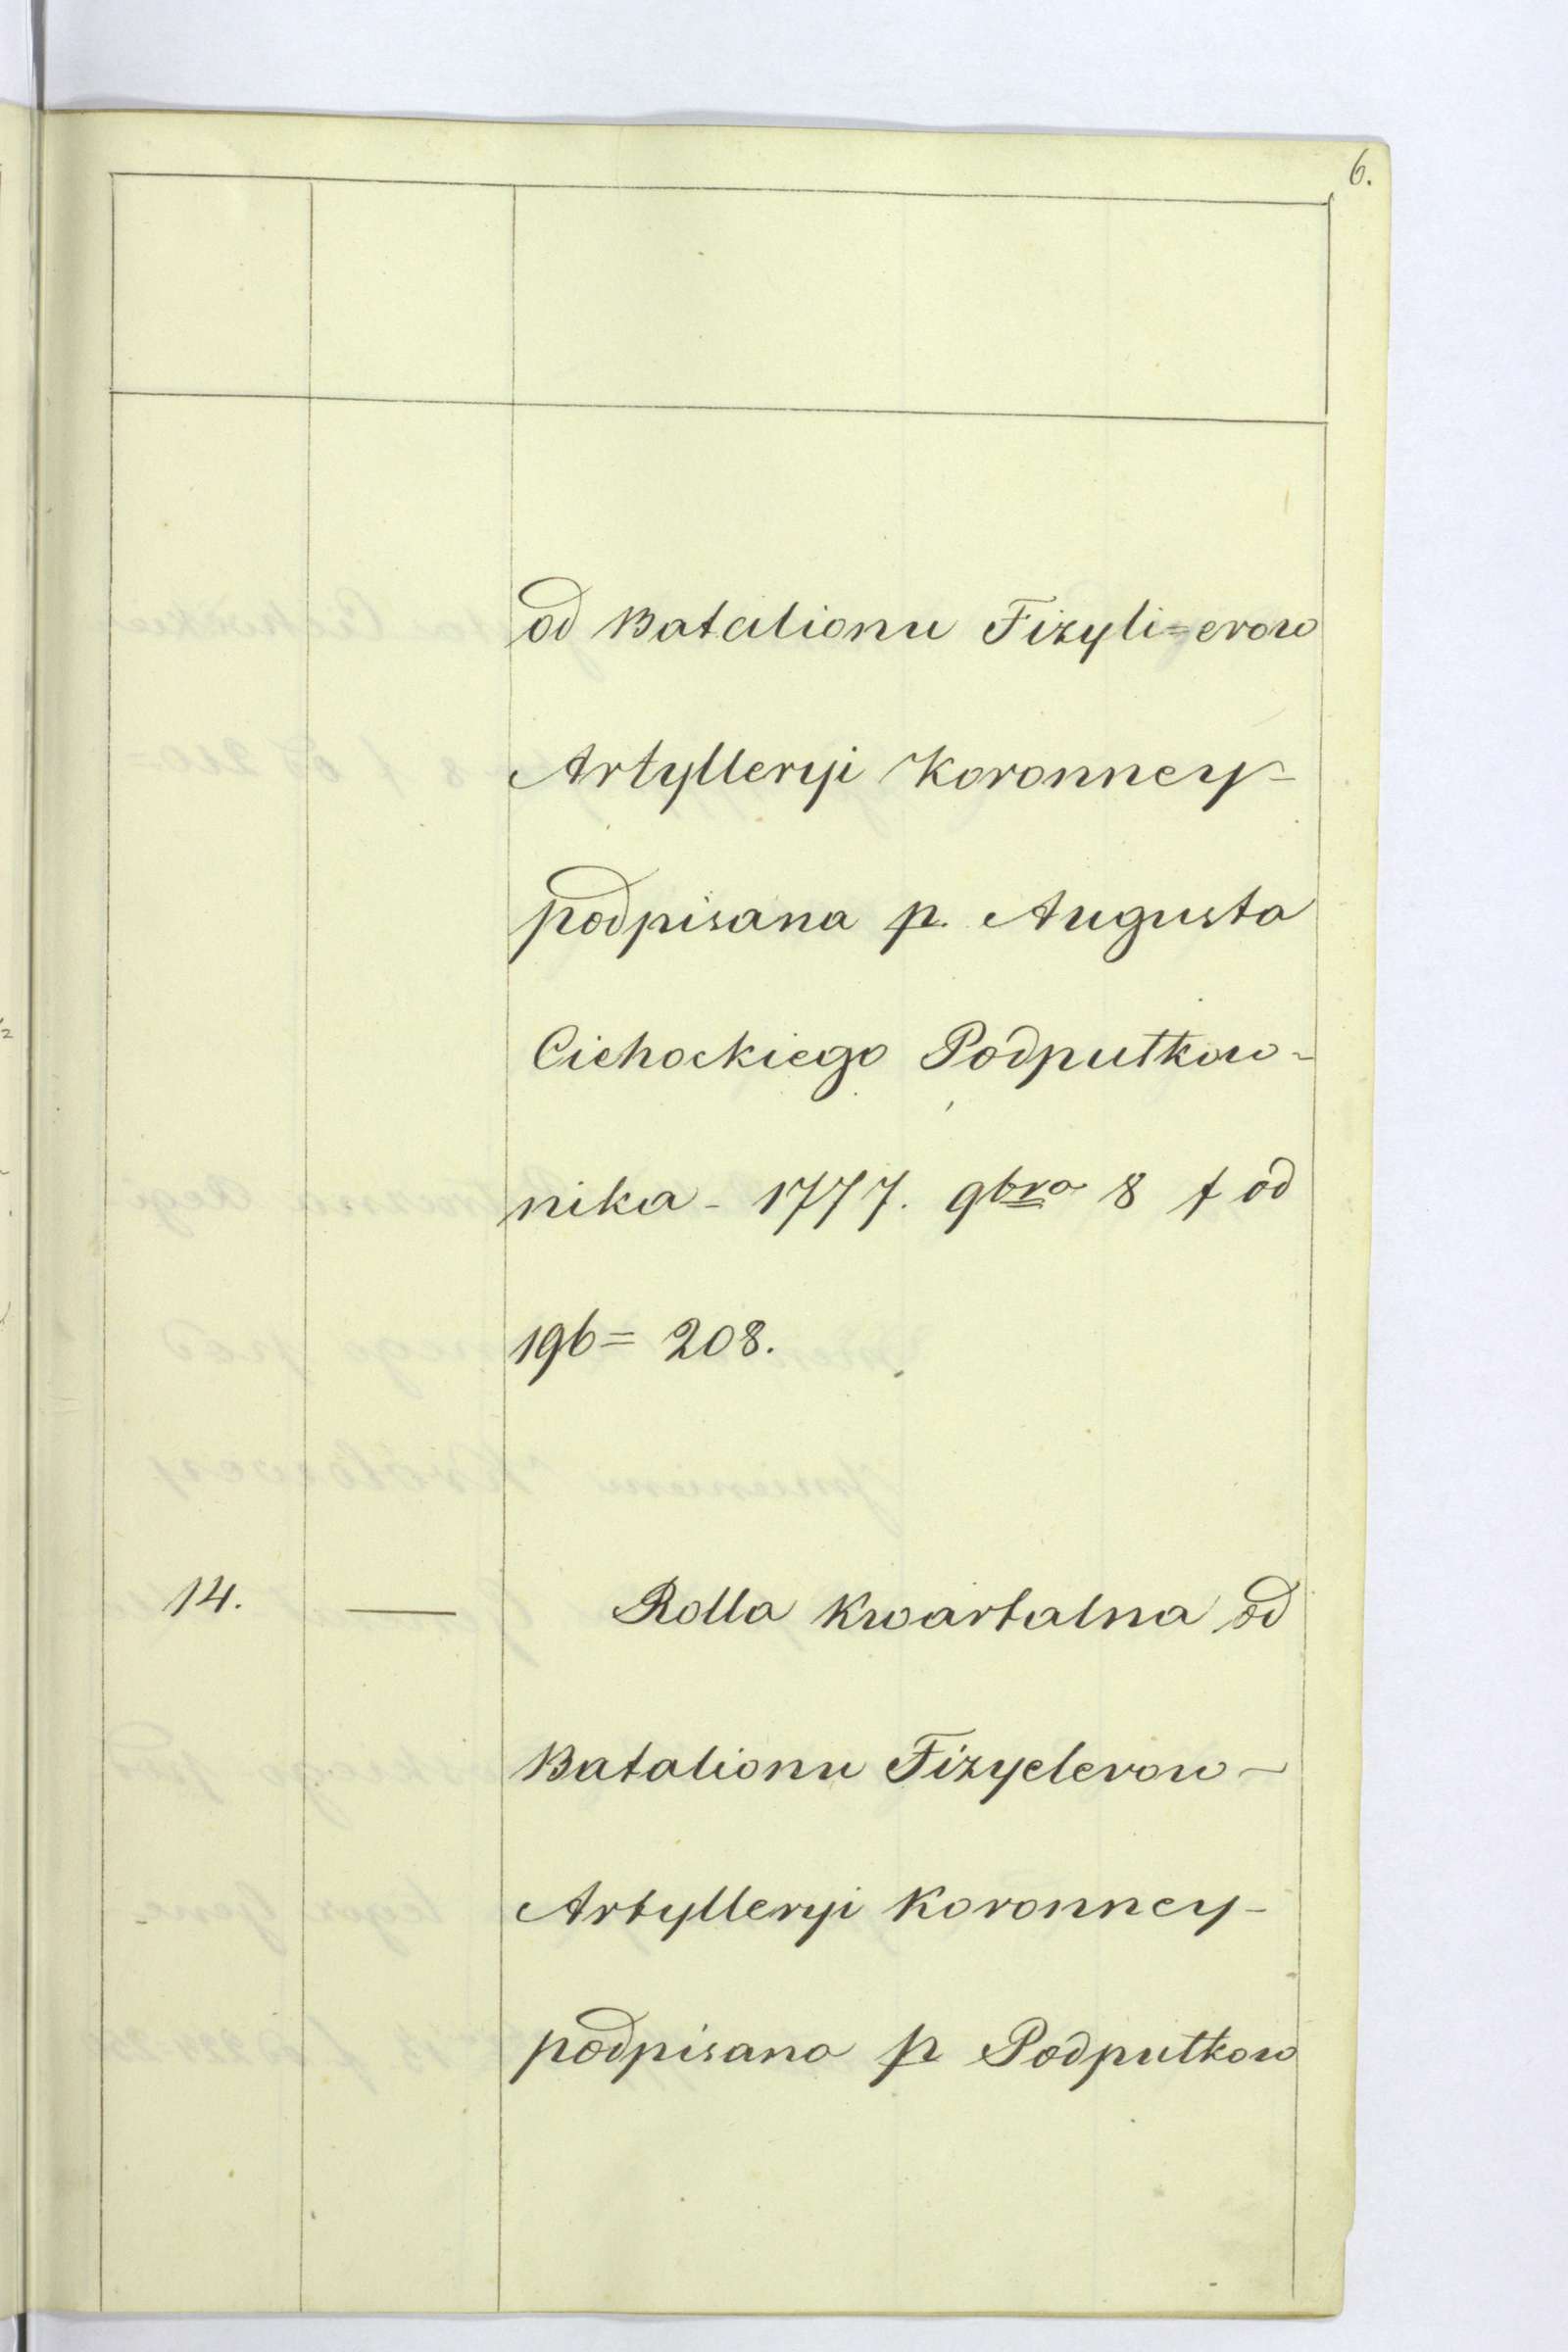 6.
od Batalionu Fizyli=erow
Artylleryi Koronney-
podpisana p. Augusta
Cichockiego Podpułkow-
nika - 1777. 9bra 8 f od
196= 208.
14. — Rolla kwartalna od
Batalionu Fizyelerow -
Artylleryi Koronney-
podpisana p Podpułkow